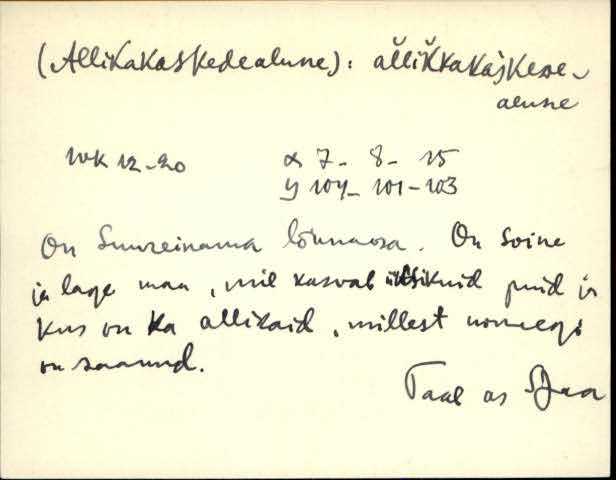 (Allikakaskedealune): aľľiǩkakaskeɒe-
alune
WK 12-20 x 7- 8- 15
y 104- 101-103
On Suureinama lõunaosa. On soine
ja lage maa, mil kasvab üksikuid puid ja
kus on ka allikaid, millest nimegi
on saanud.